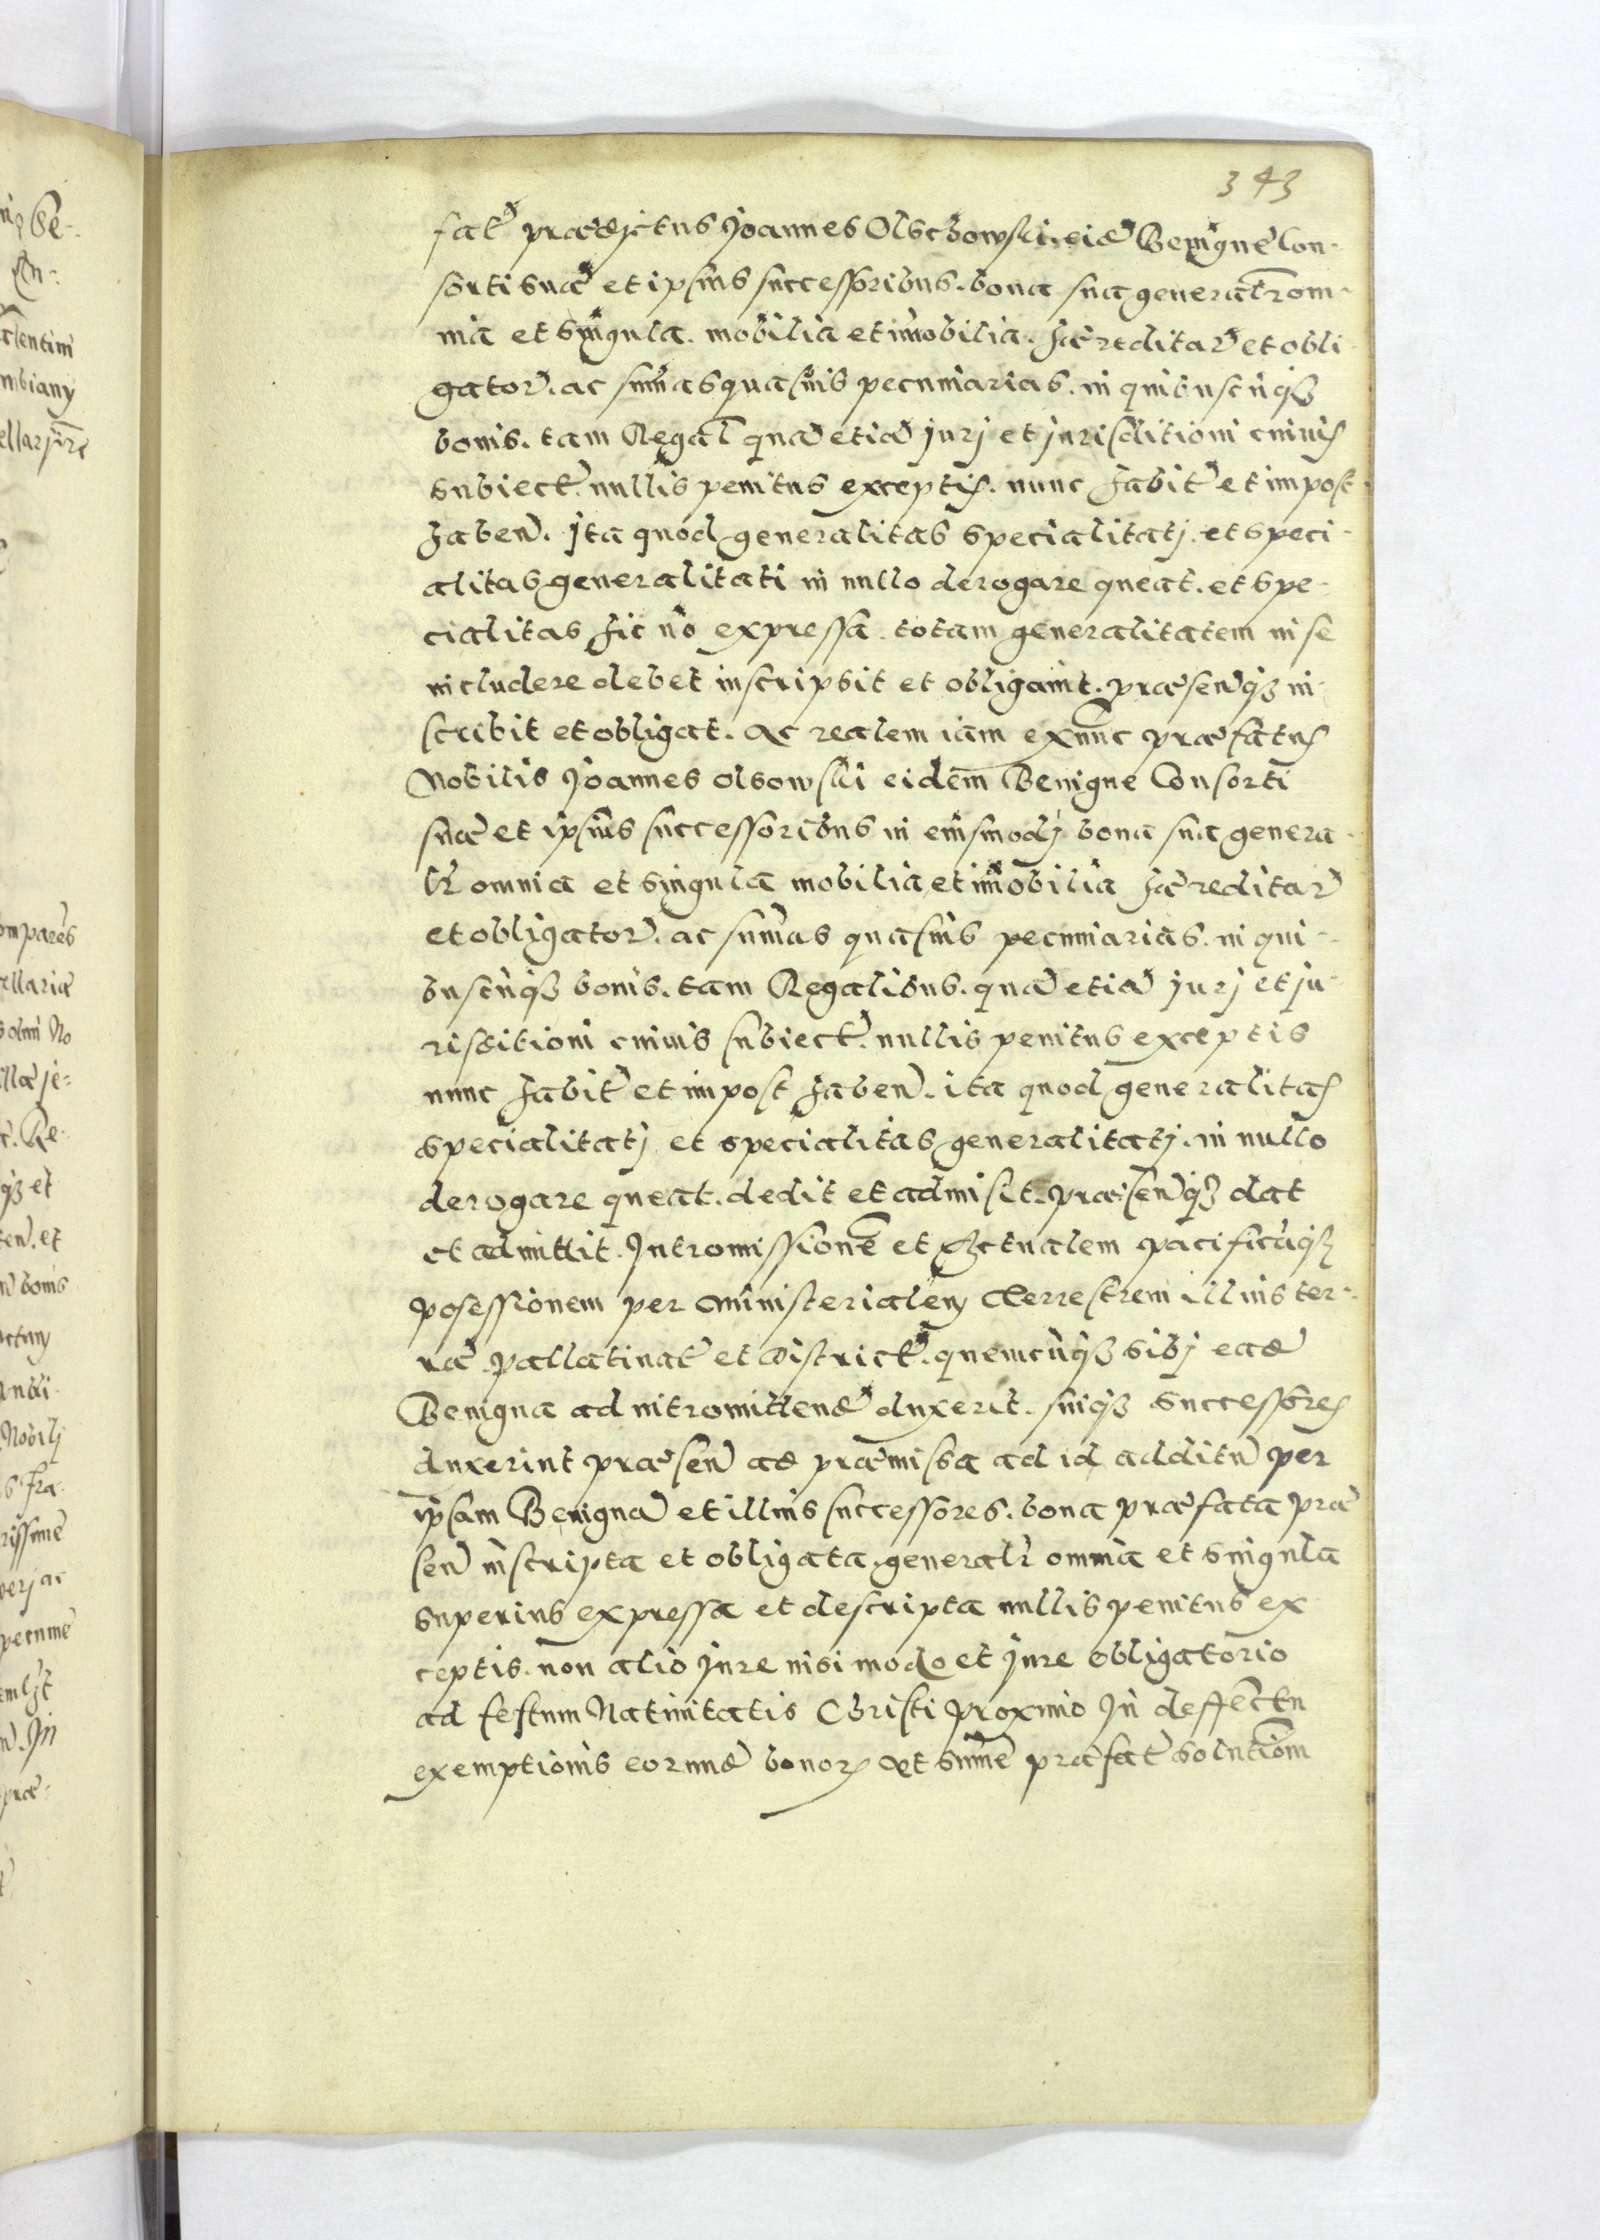 343
fat praedictus Joannes Olschowski eid Benignae Con-
sorti suae et ipsius successoribus. bona sua generalr om-
nia et singula. mobilia et imobilia. haereditar et obli
gator. ac sumas quasuis pecuniarias. in quibuscuq3
bonis. tam Regal qua etia jurj et jurisditioni cuiuis
subiect. nullis penitus exceptis. nunc habit et impost.
haben. Jta quod generalitas specialitatj. et speci-
alitas generalitati in nullo derogare queat. et spe-
cialitas hic no expressa. totam generalitatem in se
includere debet inscripsit et obligauit. praesenq3 in-
scribit et obligat. Ac realem iam exnunc praefatus
Nobilis Joannes Olsowski eidem Benigne Consorti
suae et ipsius successoribus in eiusmodj bona sua genera-
lr omnia et singula mobilia et imobilia haereditar
et obligator. ac sumas quasuis pecuniarias. in qui-
buscuq3 bonis. tam Regalibus. qua etia jurj et ju-
risditioni cuiuis subiect. nullis penitus exceptis
nunc habit et impost haben. ita quod generalitas
specialitatj et specialitas generalitatj. in nullo
derogare queat. dedit et admisit. praesenq3 dat
et admittit. Intromissionem et actualem pacificaq3
posessionem per Ministerialem Terrestrem illius ter-
rae Pallatinat et District. quemcuq3 sibj ead
Benigna ad intromittend duxerit. suiq3 successores
duxerint praesen ad praemissa ad id additu per
ipsam Benigna et illius successores. bona praefata prae
sen inscripta et obligata. generalr omnia et singula
superius expressa et descripta nullis penitus ex
ceptis. non alio jure nisi modo et jure obligatorio
ad festum Natiuitatis Christi proximo In deffectu
exemptionis eorund bonor et sume praefat solutiom